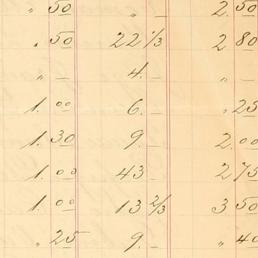 " 50 " – 2.50
" 50 22 1/3 2 80
" – 4. – " –
1.00 6. – " 25
1.30 9 – 2.00
1.00 43 – 2 75
1.00 13 2/3 3 50
" 25 9. – " 40